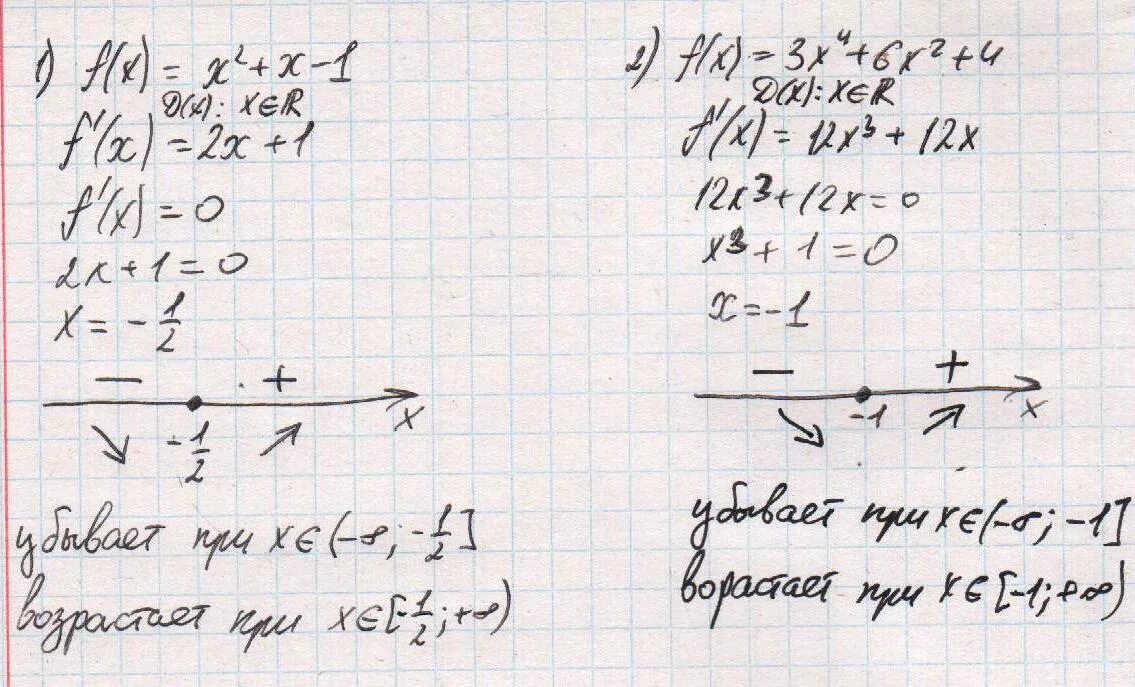 1) f(x) = x² + x - 1
D(x): x∈ℝ
f'(x) = 2x + 1
f'(x) = 0
2x + 1 = 0
x = - 1/2
− +
-1/2 x
убывает при x∈(-∞; -1/2]
возрастает при x∈[-1/2; +∞)
2) f(x) = 3x⁴ + 6x² + 4
D(x): x∈ℝ
f'(x) = 12x³ + 12x
12x³ + 12x = 0
x³ + 1 = 0
x = -1
− +
-1 x
убывает при x∈(-∞; -1]
ворастает при x∈[-1; +∞)